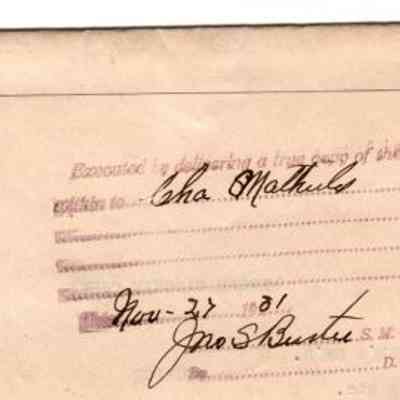 Executed by delivering a true copy of the
within to Cha
Nov - 27 1931
Jno S Buster S. M.
By D.